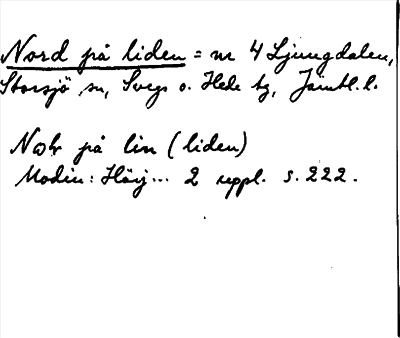 Nord på liden = nr 4 Ljungdalen,
Storsjö sn, Svegs o. Hede tg, Jämtl. l.
Nol på lin (liden)
Modin: Härj... 2 uppl. s. 222.